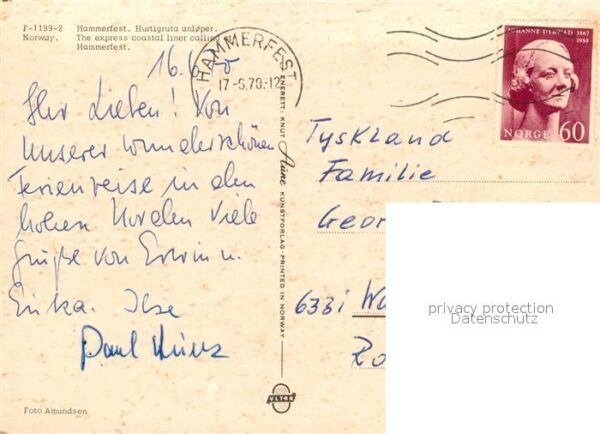 F-1199-2 Hammerfest. Hurtigruta anløper.
Norway. The express coastal liner calling
Hammerfest.
16.6.70
Ihr Lieben! Von
unserer wunderschönen
Ferienreise in den
hohen Norden viele
Grüße von Erwin u.
Erika. Ilse
Paul
Foto Amundsen
HAMMERFEST
17-6.70.-12
ENERETT: KNUT Aune KUNSTFORLAG-PRINTED IN NORWAY
ULTRA
JOHANNE DYBWAD 1867
1950
NORGE 60
Tyskland
Familie
Geor
6331 Wa
privacy protection
Datenschutz